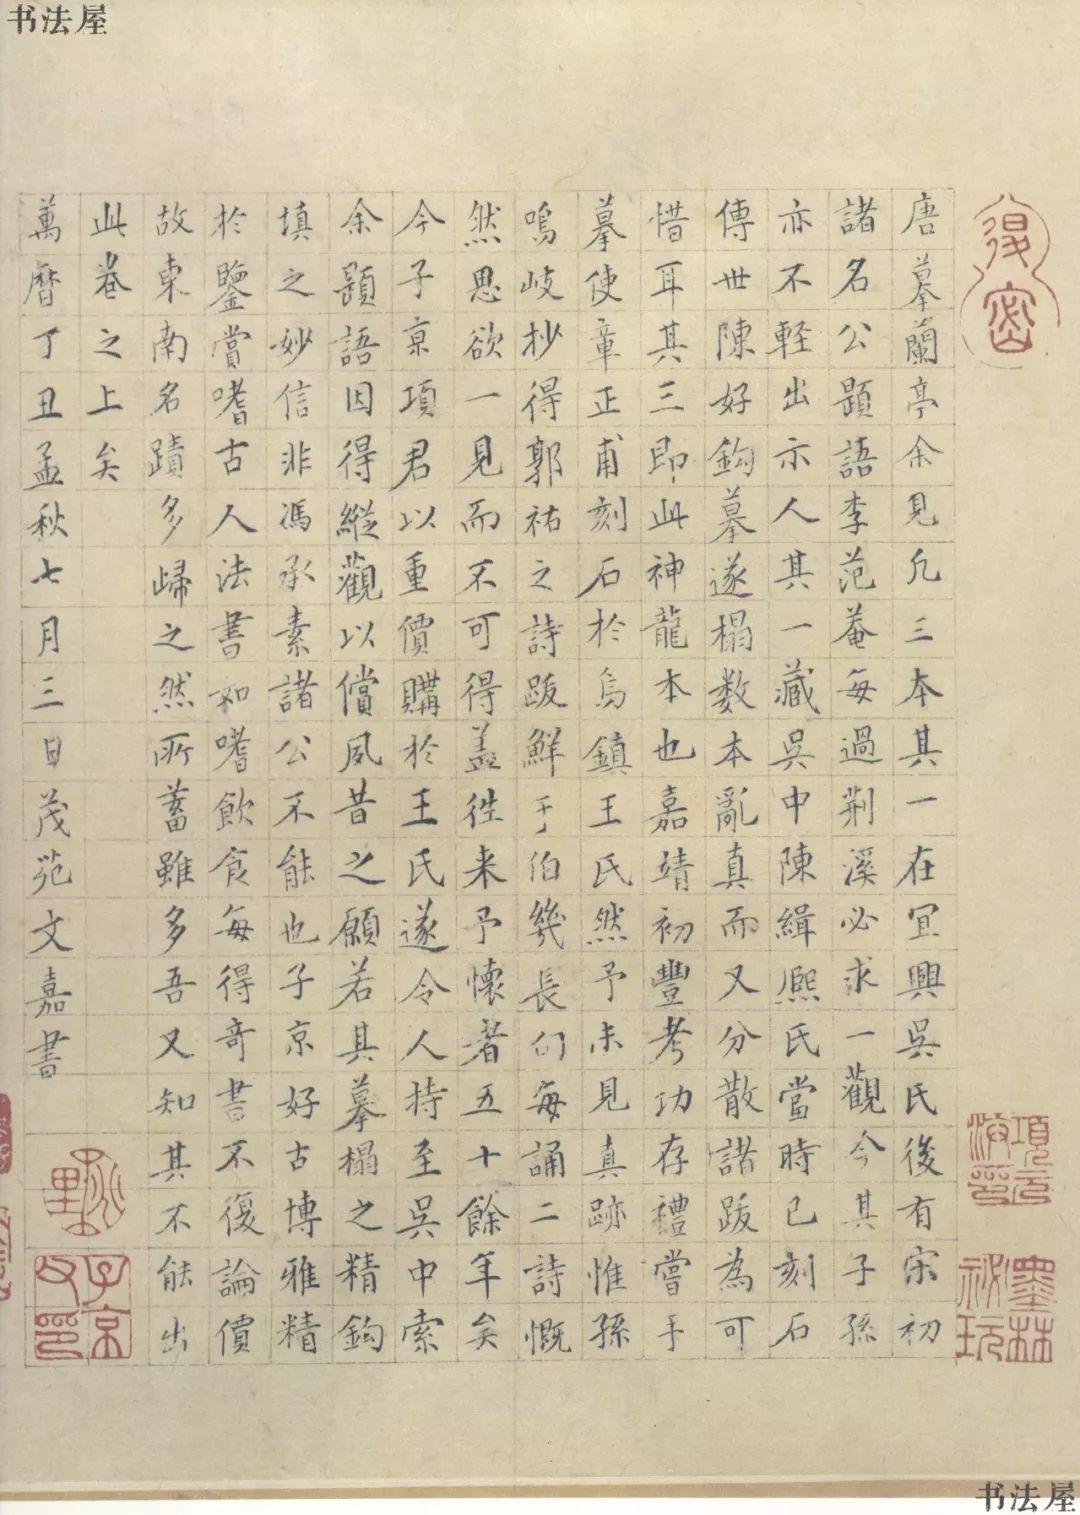 书法屋
唐摹蘭亭余見凡三本其一在宜興吳氏後有宋初
諸名公題語李范菴每過荆溪必求一觀今其子孫
亦不輕出示人其一藏吳中陳緝熙氏當時已刻石
傳世陳好鈎摹遂榻数本亂真而又分散諸跋為可
惜耳其三即此神龍本也嘉靖初豐考功存禮嘗手
摹使章正甫刻石於烏鎮王氏然予未見真跡惟孫
鳴岐抄得郭祐之詩跋鮮于伯幾長句每誦二詩慨
然思欲一見而不可得盖徃来予懷者五十餘年矣
今子京項君以重價購於王氏遂令人持至吳中索
余題語因得縱觀以償夙昔之願若其摹榻之精鈎
填之妙信非馮承素諸公不能也子京好古博雅精
於鑒賞嗜古人法書如嗜飲食每得奇書不復論價
故東南名蹟多歸之然所蓄雖多吾又知其不能出
此卷之上矣
萬曆丁丑孟秋七月三日茂苑文嘉書
項元汴印
墨林秘玩
子京父印
书法屋